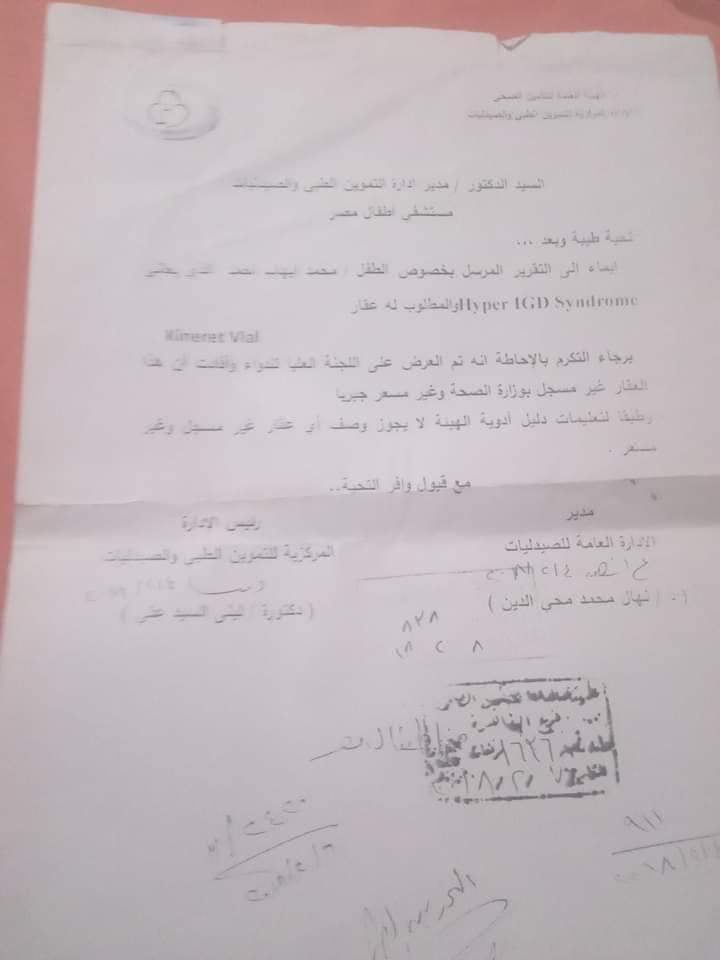 الهيئة العامة للتأمين الصحي
الإدارة المركزية للتموين الطبي والصيدليات
السيد الدكتور / مدير ادارة التموين الطبي والصيدليات
مستشفى أطفال مصر
تحية طيبة وبعد ...
ايماء الى التقرير المرسل بخصوص الطفل / محمد ايهاب احمد الذي يعاني
Hyper IGD Syndrome والمطلوب له عقار
Kineret Vial
برجاء التكرم بالإحاطة انه تم العرض على اللجنة العليا للدواء وأفادت أن هذا
العقار غير مسجل بوزارة الصحة وغير مسعر جبريا
وطبقا لتعليمات دليل أدوية الهيئة لا يجوز وصف أي عقار غير مسجل وغير
مسعر .
مع قبول وافر التحية..
مدير
الادارة العامة للصيدليات
(د / نهال محمد محي الدين )
رئيس الادارة
المركزية للتموين الطبي والصيدليات
( دكتورة / ليلى السيد )
٨٢٨
١٨ ٢ ٨
فرع القاهرة
٩١١